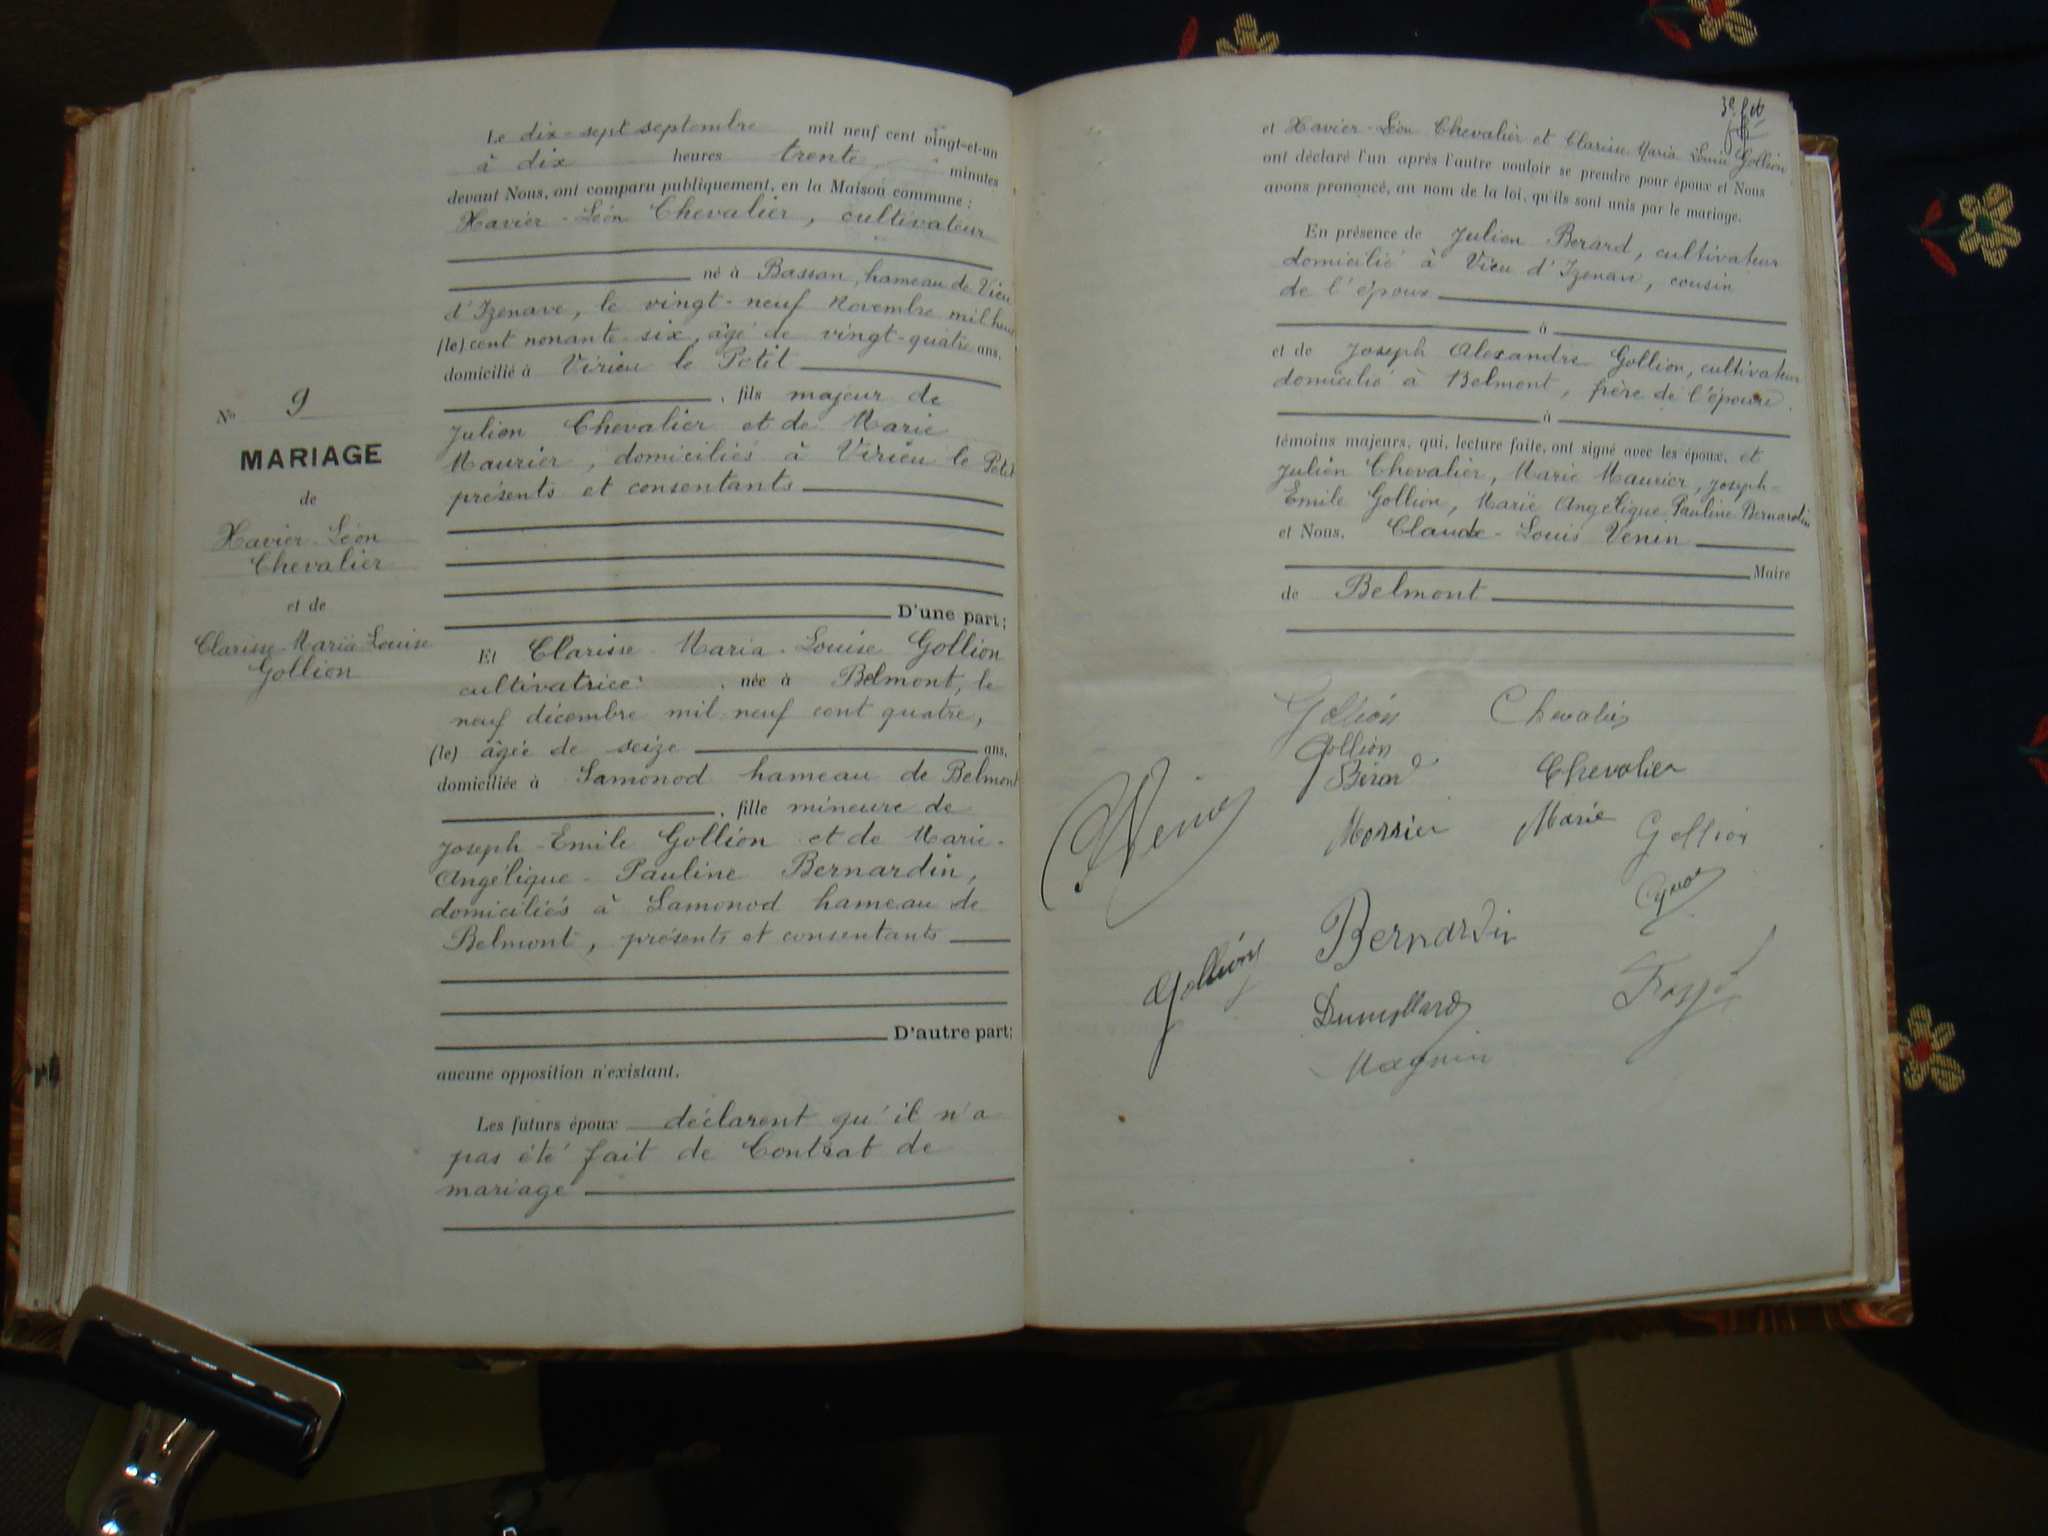 Le dix-sept septembre mil neuf cent vingt-et-un
à dix heures trente minutes
devant Nous, ont comparu publiquement, en la Maison commune :
Xavier-Léon Chevalier, cultivateur
né à Bassan, hameau de Vieu
d'Izenave, le vingt-neuf Novembre mil huit
(le) cent nonante-six, âgé de vingt-quatre ans,
domicilié à Virieu le Petit
, fils majeur de
Julien Chevalier et de Marie
Maurier, domiciliés à Virieu le Petit
présents et consentants
D'une part ;
Nº 9
MARIAGE
de
Xavier-Léon
Chevalier
et de
Clarisse-Maria-Louise
Gollion
Et Clarisse-Maria-Louise Gollion
cultivatrice, née à Belmont, le
neuf décembre mil neuf cent quatre,
(le) âgée de seize ans,
domiciliée à Samonod hameau de Belmont
, fille mineure de
Joseph-Emile Gollion et de Marie-
Angélique-Pauline Bernardin,
domiciliés à Samonod hameau de
Belmont, présents et consentants
D'autre part ;
aucune opposition n'existant.
Les futurs époux déclarent qu'il n'a
pas été fait de Contrat de
mariage
et Xavier-Léon Chevalier et Clarisse Maria Louise Gollion
ont déclaré l'un après l'autre vouloir se prendre pour époux et Nous
avons prononcé, au nom de la loi, qu'ils sont unis par le mariage.
En présence de Julien Berard, cultivateur
domicilié à Vieu d'Izenave, cousin
de l'époux
à
et de Joseph Alexandre Gollion, cultivateur
domicilié à Belmont, frère de l'épouse.
à
témoins majeurs, qui, lecture faite, ont signé avec les époux, et
Julien Chevalier, Marie Maurier, Joseph-
Emile Gollion, Marie Angélique Pauline Bernardin
et Nous, Claude-Louis Venin
Maire
de Belmont
Gollion Chevalier
Gollion
Bérard Chevalier
Morrier Marie Gollion
Bernardin
Gollion
Dumollard
Magnin